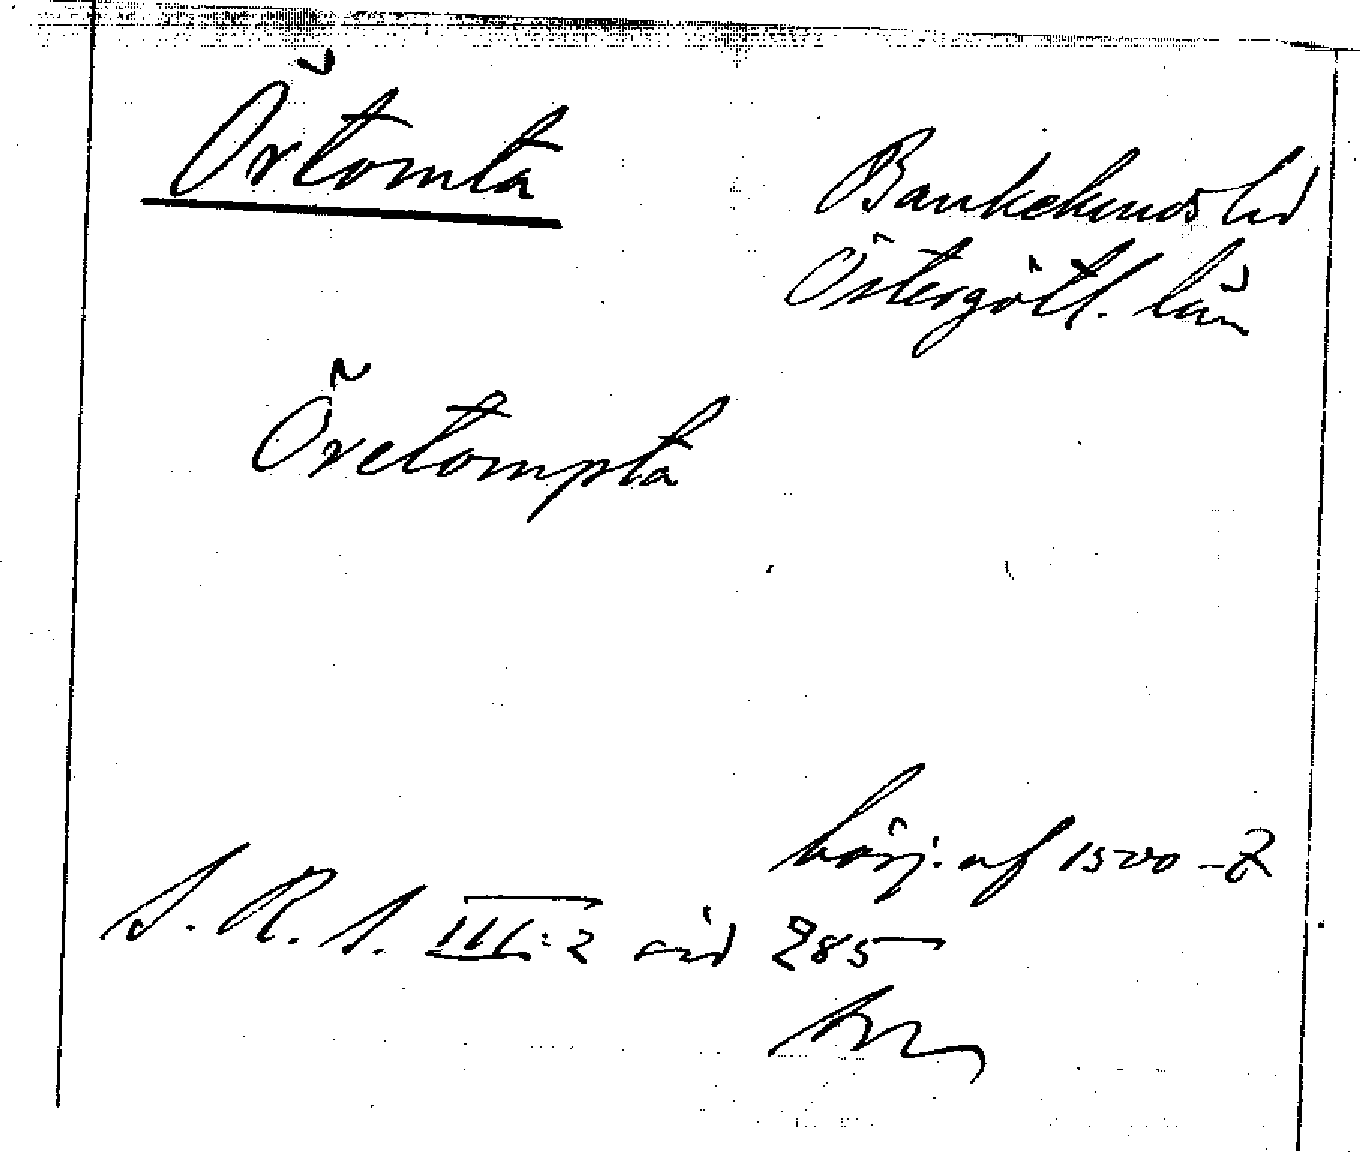 Örtomta
Bankekinds hd
Östergötl. län
Öretompta
börj. af 1500-t
S. R. S. III:2 sid 285